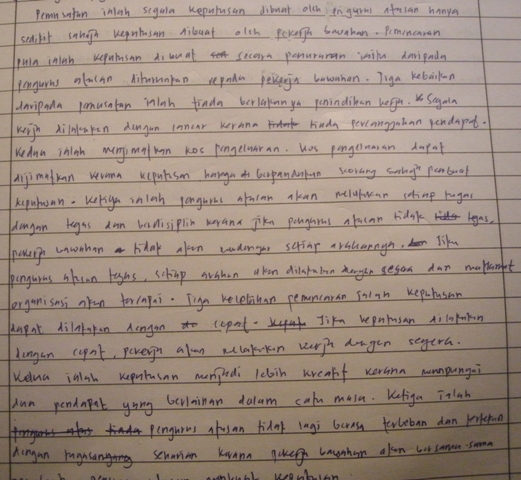 Pemusatan ialah segala keputusan dibuat oleh pengurus atasan hanya
sedikit sahaja keputusan dibuat oleh pekerja bawahan. Pemencaran
pula ialah keputusan dibuat secara penurunan iaitu daripada
pengurus atasan diturunkan kepada pekerja bawahan. Tiga kebaikan
daripada pemusatan ialah tiada berlakunya penindihan kerja. Segala
kerja dilakukan dengan lancar kerana tiada percanggahan pendapat.
Kedua ialah menjimatkan kos pengeluaran. Kos pengeluaran dapat
dijimatkan kerana keputusan hanya di berpandukan seorang sahaja pembuat
keputusan. Ketiga ialah pengurus atasan akan melakukan setiap tugas
dengan tegas dan berdisiplin kerana jika pengurus atasan tidak tegas,
pekerja bawahan tidak akan mendengar setiap arahannya. Jika
pengurus atasan tegas, setiap arahan akan dilakukan dengan segera dan matlamat
organisasi akan tercapai. Tiga kelebihan pemencaran ialah keputusan
dapat dilakukan dengan cepat. Jika keputusan dilakukan
dengan cepat, pekerja akan melakukan kerja dengan segera.
Kedua ialah keputusan menjadi lebih kreatif kerana mempunyai
dua pendapat yang berlainan dalam satu masa. Ketiga ialah
pengurus atasan tidak lagi berasa terbeban dan tertekan
dengan seharian kerana pekerja bawahan akan bersama-sama
keputusan.